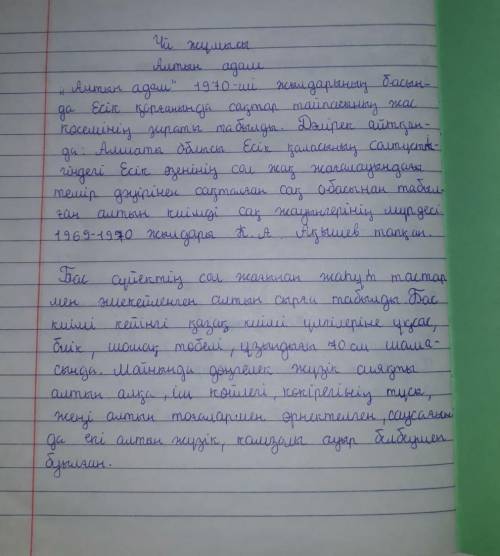 Үй жұмысы
Алтын адам
„Алтын адам" 1970-ші жылдарының басын-
да Есік қорғанында сақтар тайпасының жас
көсемінің зираты табылды. Дәлірек айтқан-
да: Алматы облысы Есік қаласының солтүстік-
гіндегі Есік өзенінің сол жақ жағалауындағы
темір дәуірінен сақталған сақ обасынан табыл-
ған алтын киімді сақ жауынгерінің мүрдесі
1969-1970 жылдары К. А Ақышев тапқан.
Бас сүйектің сол жағынан жаһұт тастар
мен әшекейленген алтын сырға табылды. Бас
киімі кейінгі қазақ киімі үлгілеріне ұқсас,
биік, шошақ төбелі, ұзындығы 70 см шама-
сында. Мойнында дөңгелек жүзік сияқты
алтын алқа, іш көйлегі, көкірегінің тұсы,
жеңі алтын тоғалармен өрнектелген, саусағын
да екі алтын жүзік, камзолы ауыр белбеумен
буылған.